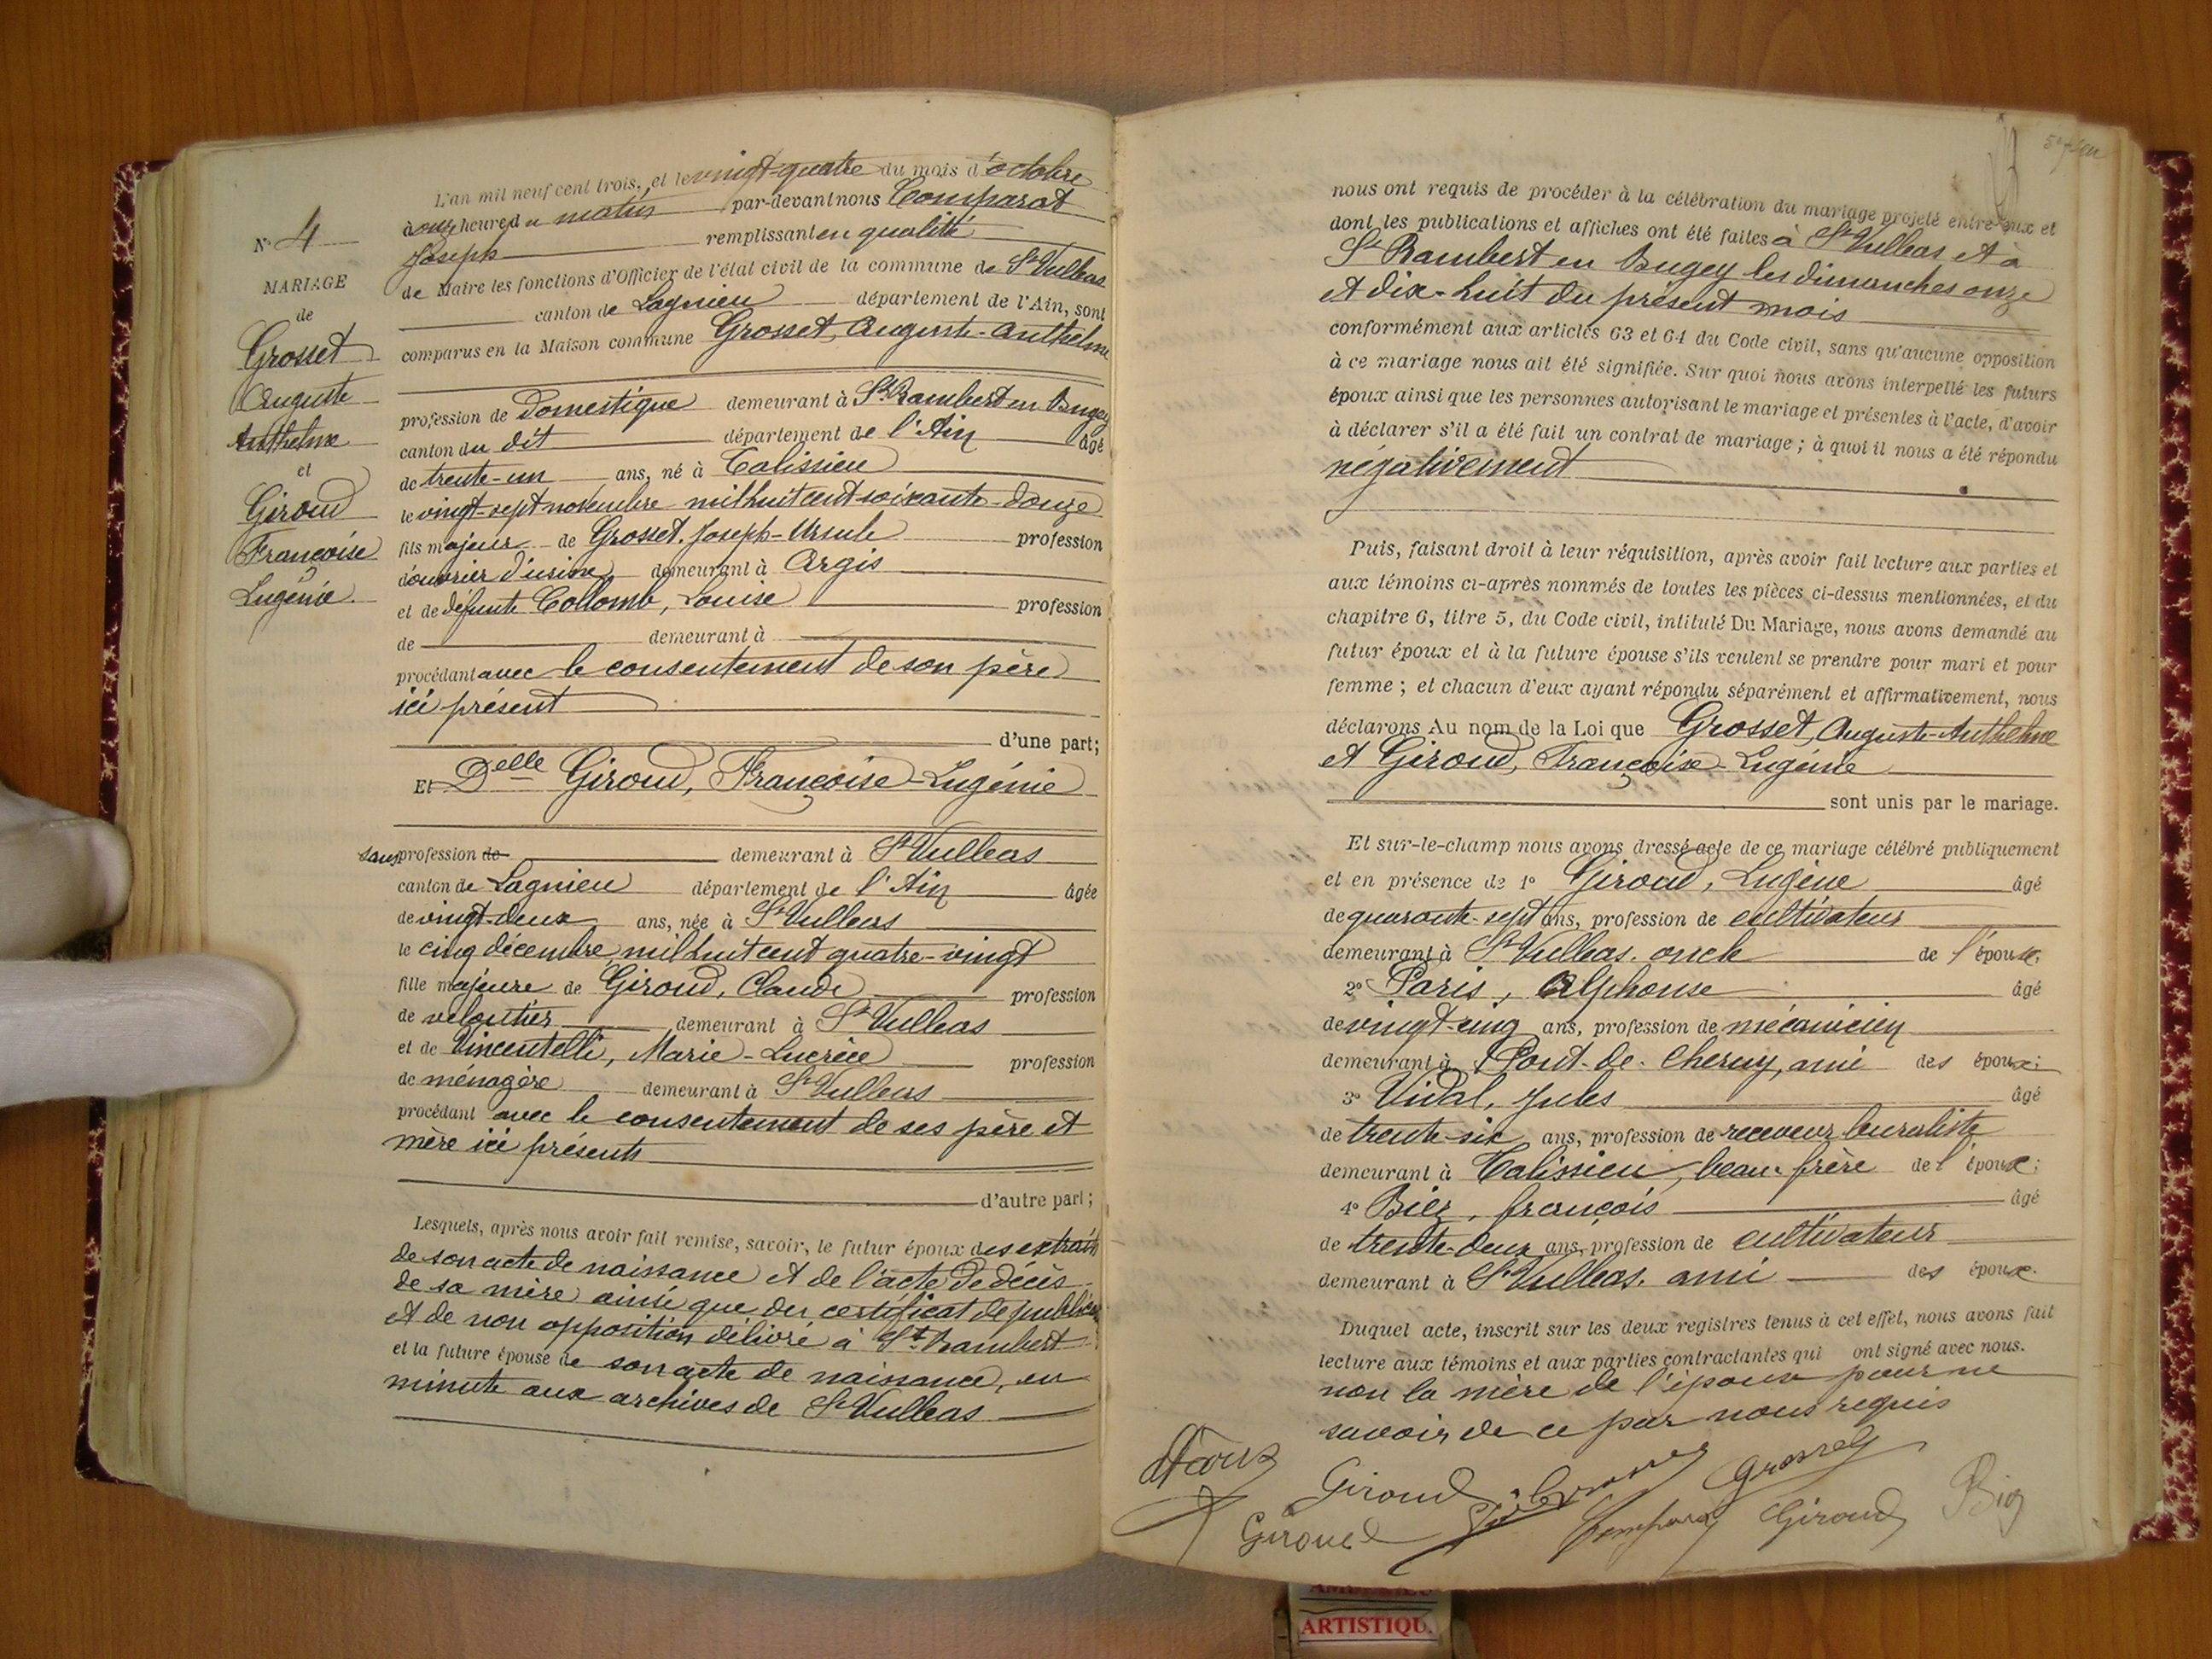 N° 4
MARIAGE
de
Grosset
Auguste
Anthelme
et
Giroud
Françoise
Eugénie
L'an mil neuf cent trois, et le vingt-quatre du mois d'octobre
à onze heure du matin par-devant nous Comparat
Joseph remplissant en qualité
de Maire les fonctions d'Officier de l'état civil de la commune de St Vulbas
canton de Lagnieu département de l'Ain, sont
comparus en la Maison commune Grosset, Auguste-Anthelme
profession de Domestique demeurant à St Rambert en Bugey
canton du dit département de l'Ain âgé
de trente-un ans, né à Talissieu
le vingt-sept novembre mil huit cent soixante-douze
fils majeur de Grosset, Joseph-Ursule profession
d'ouvrier d'usine demeurant à Argis
et de défunte Collomb, Louise profession
de demeurant à
procédant avec le consentement de son père
ici présent
d'une part;
Et Delle Giroud, Françoise-Eugénie
sans profession de demeurant à St Vulbas
canton de Lagnieu département de l'Ain âgée
de vingt-deux ans, née à St Vulbas
le cinq décembre mil huit cent quatre-vingt
fille majeure de Giroud, Claude profession
de veloutier demeurant à St Vulbas
et de Vincentelli, Marie-Lucrèce profession
de ménagère demeurant à St Vulbas
procédant avec le consentement de ses père et
mère ici présents
d'autre part;
Lesquels, après nous avoir fait remise, savoir, le futur époux des extraits
de son acte de naissance et de l'acte de décès
de sa mère ainsi que du certificat de publication
et de non opposition délivré à St Rambert
et la future épouse de son acte de naissance, en
minute aux archives de St Vulbas
nous ont requis de procéder à la célébration du mariage projeté entre eux et
dont les publications et affiches ont été faites à St Vulbas et à
St Rambert en Bugey les dimanches onze
et dix-huit du présent mois
conformément aux articles 63 et 64 du Code civil, sans qu'aucune opposition
à ce mariage nous ait été signifiée. Sur quoi nous avons interpellé les futurs
époux ainsi que les personnes autorisant le mariage et présentes à l'acte, d'avoir
à déclarer s'il a été fait un contrat de mariage; à quoi il nous a été répondu
négativement
Puis, faisant droit à leur réquisition, après avoir fait lecture aux parties et
aux témoins ci-après nommés de toutes les pièces ci-dessus mentionnées, et du
chapitre 6, titre 5, du Code civil, intitulé Du Mariage, nous avons demandé au
futur époux et à la future épouse s'ils veulent se prendre pour mari et pour
femme; et chacun d'eux ayant répondu séparément et affirmativement, nous
déclarons Au nom de la Loi que Grosset, Auguste-Anthelme
et Giroud, Françoise-Eugénie
sont unis par le mariage.
Et sur-le-champ nous avons dressé acte de ce mariage célébré publiquement
et en présence de 1° Giroud, Eugène âgé
de quarante-sept ans, profession de cultivateur
demeurant à St Vulbas, oncle de l'épouse;
2° Paris, Alphonse âgé
de vingt-cinq ans, profession de mécanicien
demeurant à Pont-de-Cheruy, ami des époux;
3° Vidal, Jules âgé
de trente-six ans, profession de receveur buraliste
demeurant à Talissieu, beau-frère de l'époux;
4° Biez, françois âgé
de trente-deux ans, profession de cultivateur
demeurant à St Vulbas, ami des époux.
Duquel acte, inscrit sur les deux registres tenus à cet effet, nous avons fait
lecture aux témoins et aux parties contractantes qui ont signé avec nous.
non la mère de l'épouse pour ne
savoir de ce par nous requis
Giroud Grosset
Giroud Comparat Giroud
ARTISTIQU